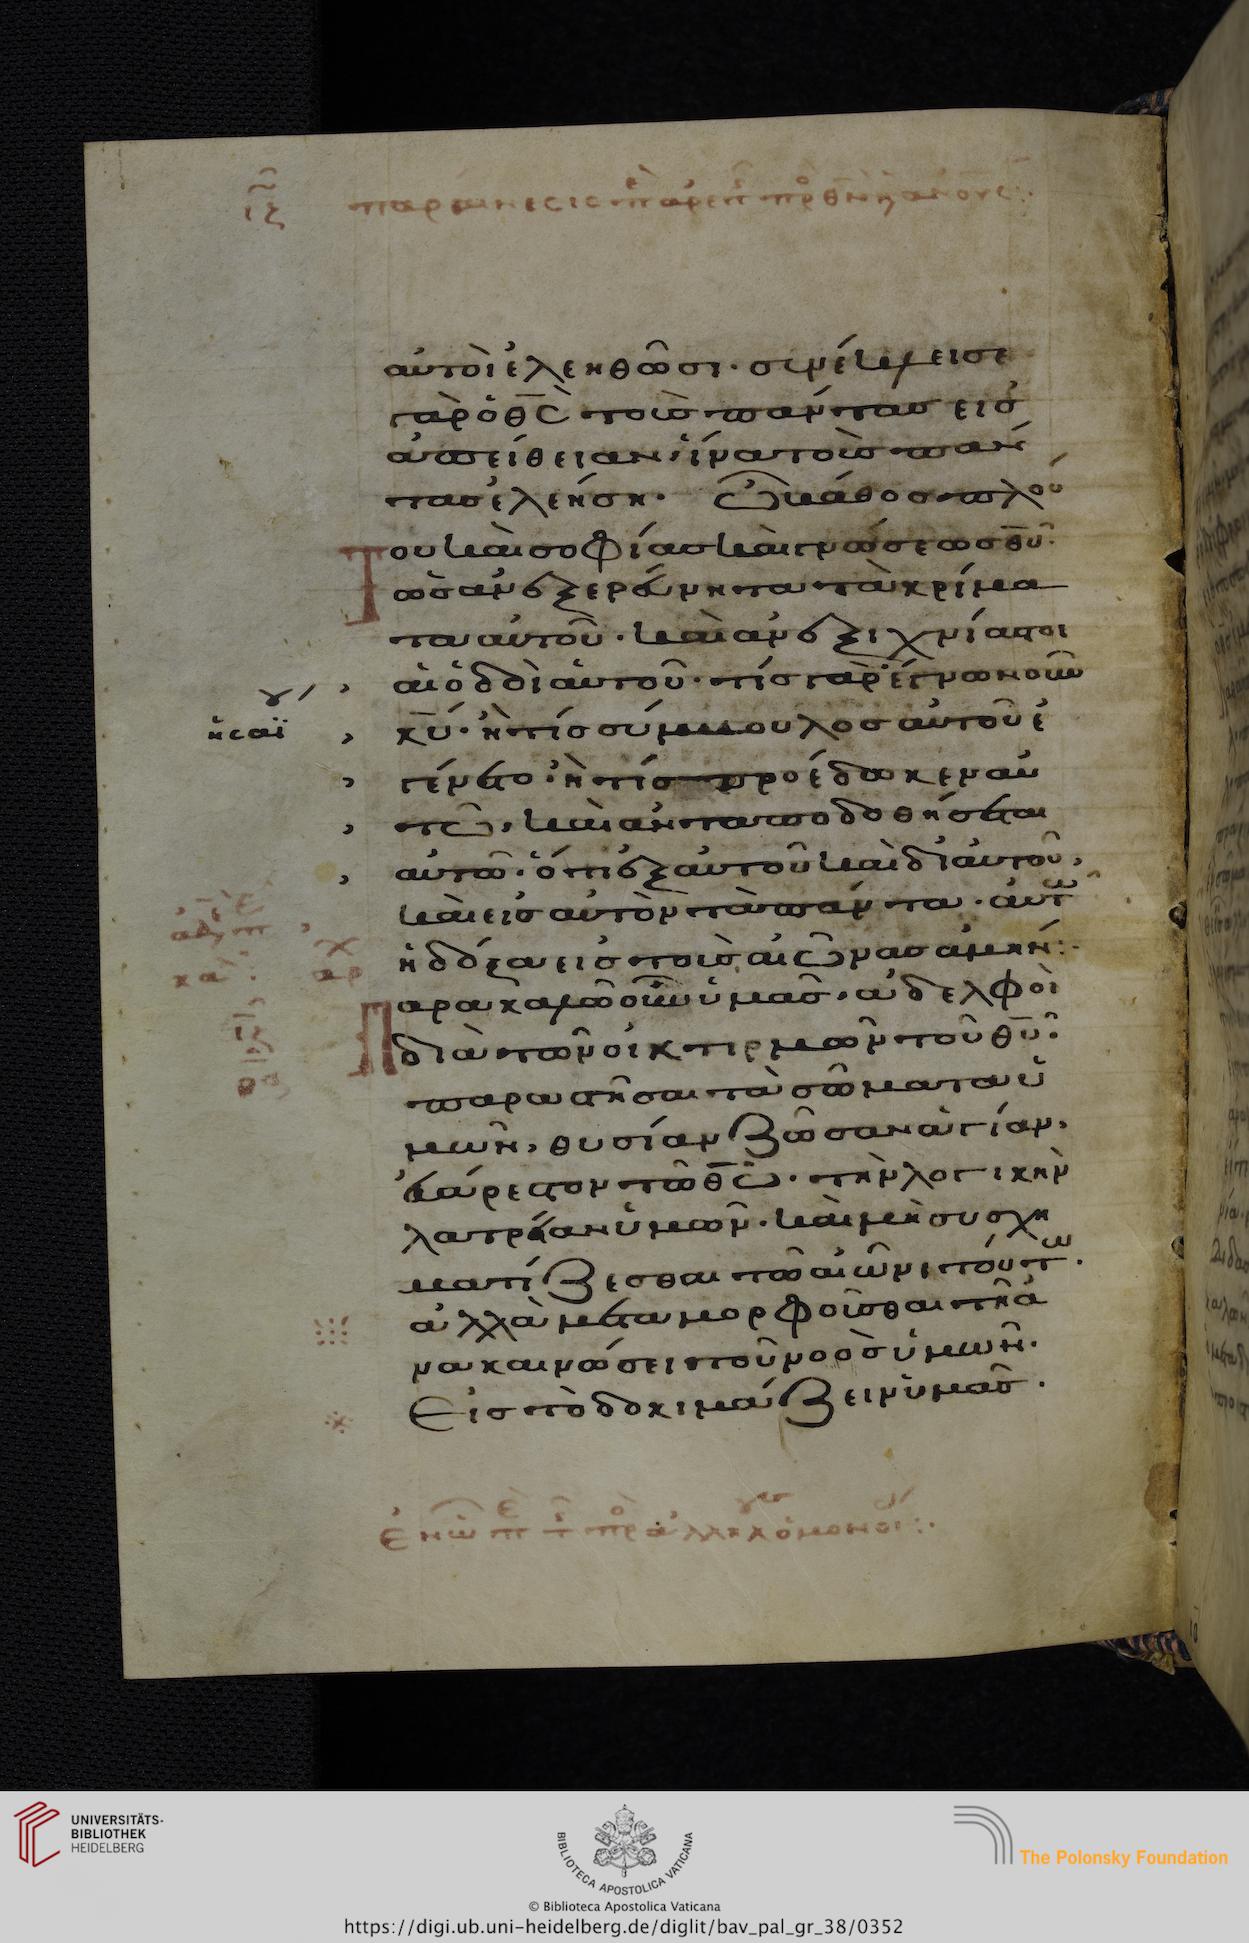 ιζ παραίνεσις π ἀρετ πρ θν κ ανους:
αὐτοὶ ἐλεηθῶσι· συνέκλεισε
γὰρ ὁ θς τοὺς πάντας εἰς
ἀπείθειαν· ἵνα τοὺς πάν
τας ἐλεήση· Ὦ βάθος πλού
του καὶ σοφίας καὶ γνώσεως θυ·
ὡς ἀνεξερεύνητα τὰ κρίμα
τα αὐτοῦ· καὶ ἀνεξιχνίαστοι
αἱ ὁδοὶ αὐτοῦ· τίς γὰρ ἔγνω νοῦν
ἠσαΐ
κυ· ἢ τίς σύμβουλος αὐτοῦ ἐ
γένετο· ἢ τίς προέδωκεν αὐ
τῶ, καὶ ἀνταποδοθήσεται
αὐτῶ· ὅτι ἐξ αὐτοῦ καὶ δι' αὐτοῦ,
καὶ εἰς αὐτὸν τὰ πάντα· αὐτῶ
ἡ δόξα εἰς τοὺς αἰῶνας ἀμήν:
Παρακαλῶ οὖν ὑμᾶς, ἀδελφοὶ
διὰ τῶν οἰκτιρμῶν τοῦ θυ·
παραστῆσαι τὰ σώματα ὑ
μῶν, θυσίαν ζῶσαν ἁγίαν,
εὐάρεστον τῶ θῶ· τὴν λογικὴν
λατρείαν ὑμῶν· καὶ μὴ συσχη
ματίζεσθαι τῶ αἰῶνι τούτω·
ἀλλὰ μεταμορφοῦσθαι τῆ ἀ
νακαινώσει τοῦ νοὸς ὑμῶν·
Εἰς τὸ δοκιμάζειν ὑμᾶς·
UNIVERSITÄTS-
BIBLIOTHEK
HEIDELBERG
BIBLIOTECA APOSTOLICA VATICANA
The Polonsky Foundation
© Biblioteca Apostolica Vaticana
https://digi.ub.uni-heidelberg.de/diglit/bav_pal_gr_38/0352